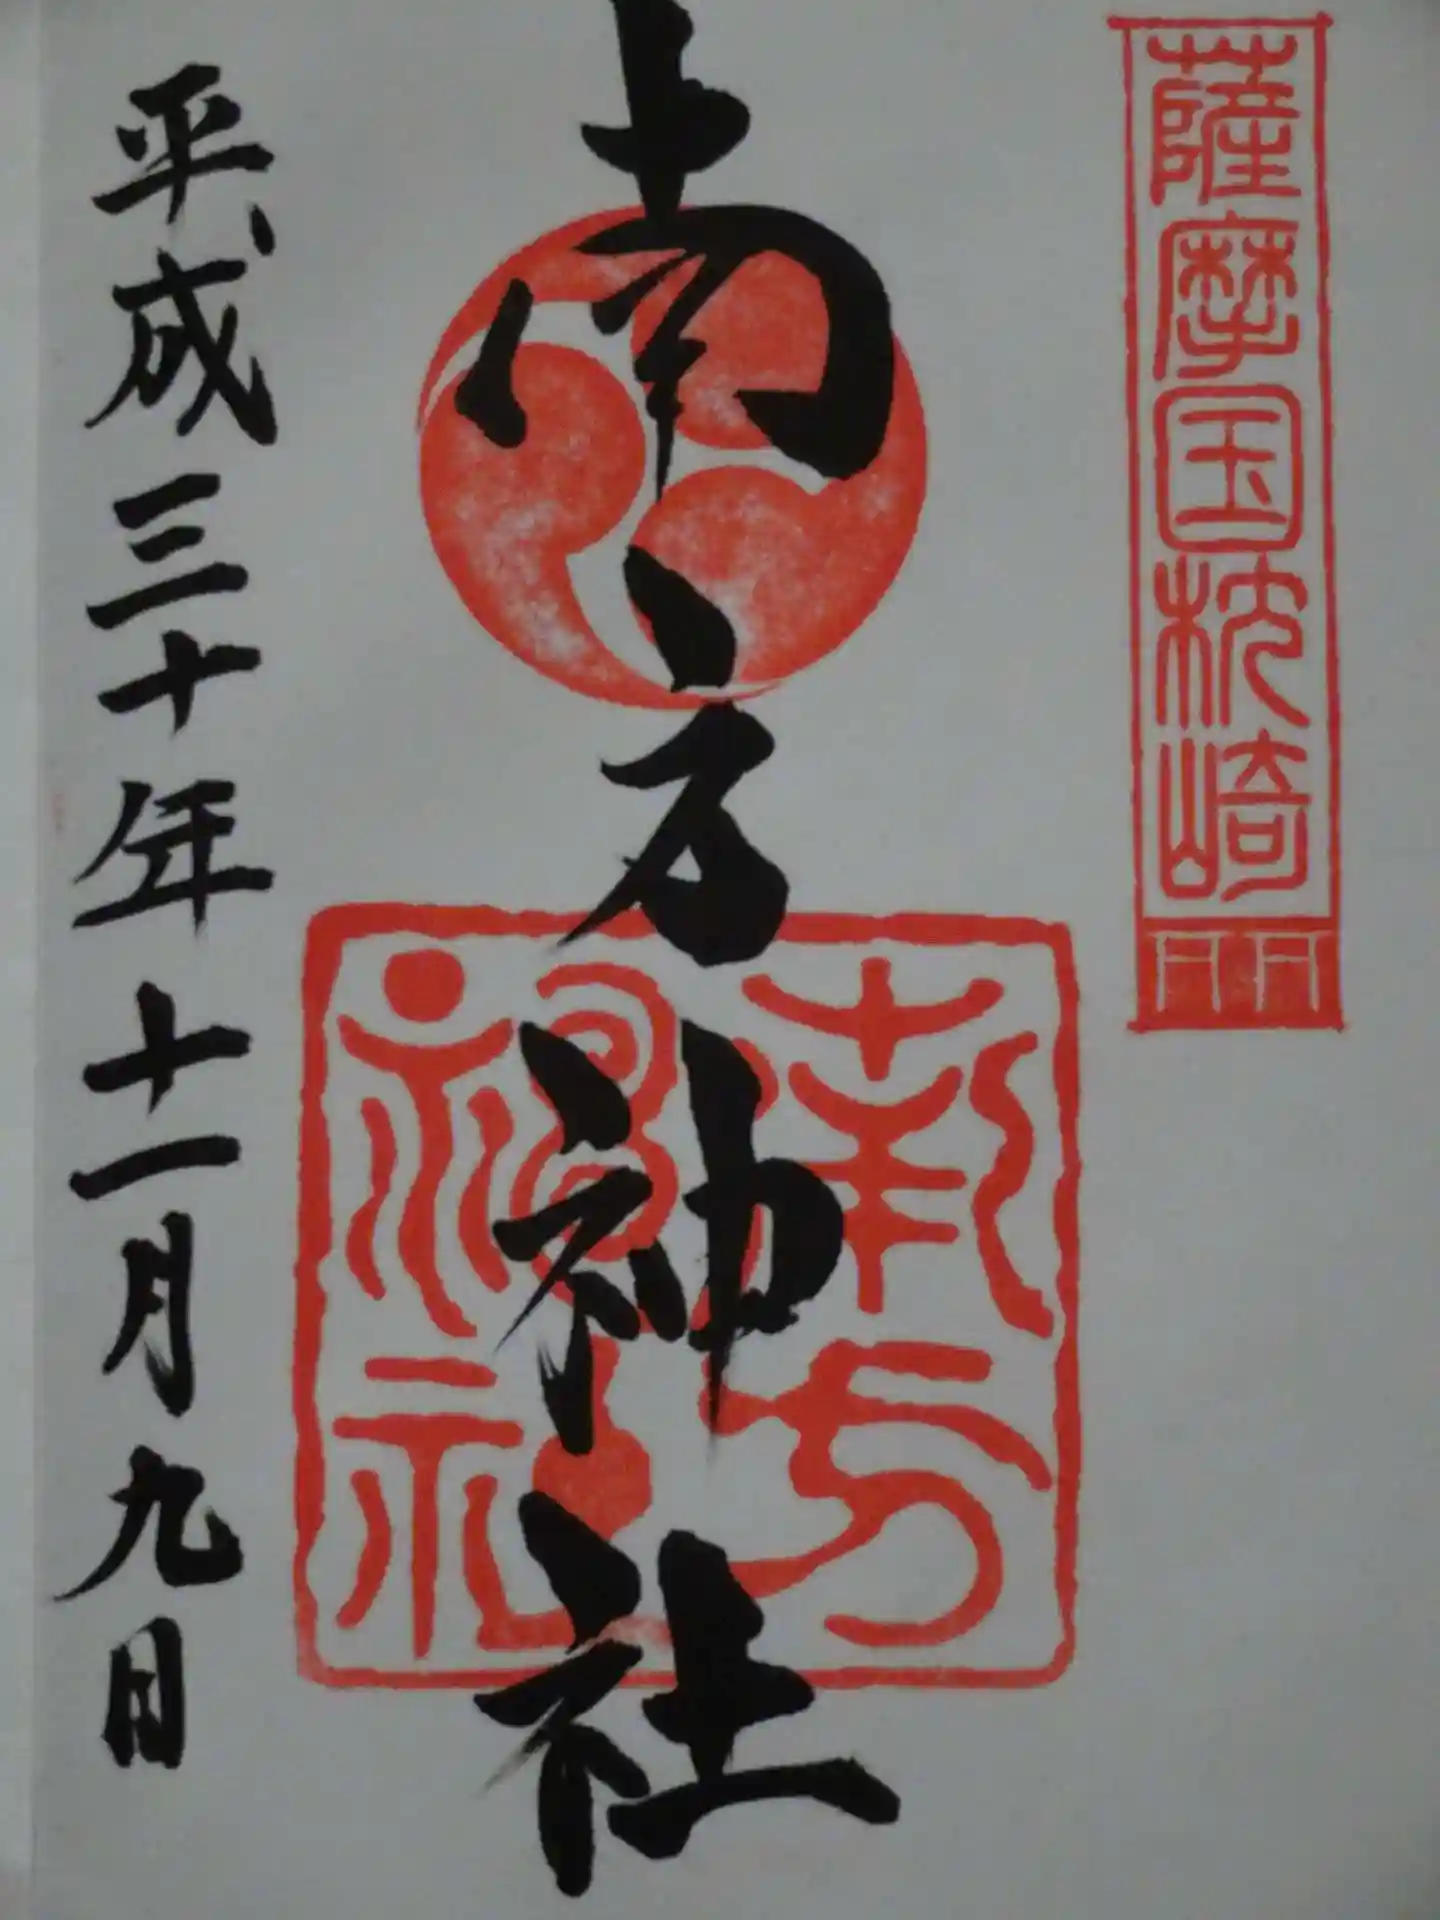 薩摩国枕崎
南方神社
南方神社
平成三十年十一月九日